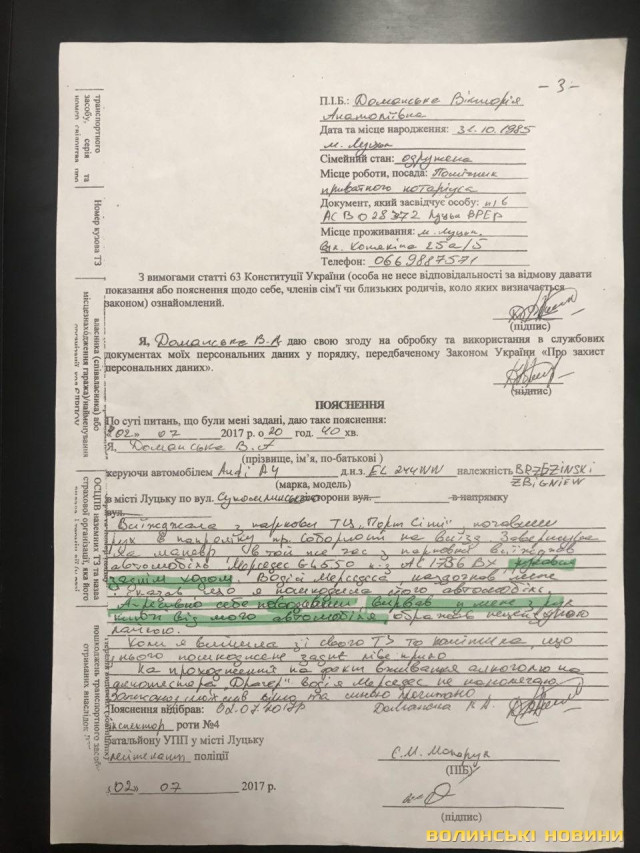 - 3 -
П.І.Б.: Доманська Вікторія
Анатоліївна
Дата та місце народження: 31.10.1985
м. Луцьк
Сімейний стан: одружена
Місце роботи, посада: Помічник
приватного нотаріуса
Документ, який засвідчує особу: п/б
АСВ 028372 Луцьк ВРЕР
Місце проживання: м. Луцьк,
25а/5
Телефон: 0669887571
З вимогами статті 63 Конституції України (особа не несе відповідальності за відмову давати
показання або пояснення щодо себе, членів сім'ї чи близьких родичів, коло яких визначається
законом) ознайомлений.
(підпис)
Я, Доманська В.А даю свою згоду на обробку та використання в службових
документах моїх персональних даних у порядку, передбаченому Законом України «Про захист
персональних даних».
(підпис)
ПОЯСНЕННЯ
По суті питань, що були мені задані, даю такі пояснення:
«02» 07 2017 р. о 20 год. 40 хв.
Я, Доманська В.А
(прізвище, ім'я, по-батькові)
керуючи автомобілем Audi A4 д.н.з. EL 244WW належність BRZEZINSKI
(марка, модель) ZBIGNIEW
в місті Луцьку по вул. сторони вул. в напрямку
вул.
Виїжджала з парковки ТЦ "Порт Сіті", починаючи
рух в напрямку пр. Соборності на виїзд. Завершувала
маневр в той же час з парковки виїжджав
автомобіль Мерседес G6550 н.з АС1736ВХ
заднім ходом. Водій Мерседеса наздогнав мене
сказав що я пошкодила його автомобіль.
Агресивно себе поводивши вирвав у мене з рук
ключі від мого автомобіля ображав нецензурною
лайкою.
Коли я вийшла зі свого ТЗ то помітила, що
у нього пошкоджене заднє ліве крило
На проходженні на факт вживання алкоголю на
"Драгер" водія Мерседес не
вірно та мною прочитано
Пояснення відібрав: 02.07.2017р
інспектор роти №4
батальйону УПП у місті Луцьку
лейтенант поліції
(ПІБ)
«02» 07 2017 р.
(підпис)
транспортного
засобу, серія та
Номер кузова ТЗ
власника (співвласника) або
ОСЦПВ наземних ТЗ та назва
страхової організації, яка його
пошкоджень транспортного засобу
ВОЛИНСЬКІ НОВИНИ